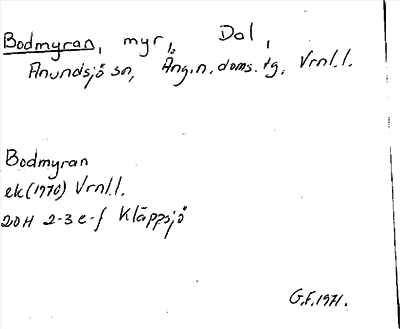 Bodmyran, myr, Dal,
Anundsjö sn, Ång.n.doms.tg. Vrnl.l.
Bodmyran
ek(1970) Vrnl.l.
20H 2-3 e-f Kläppsjö
G.F.1971.